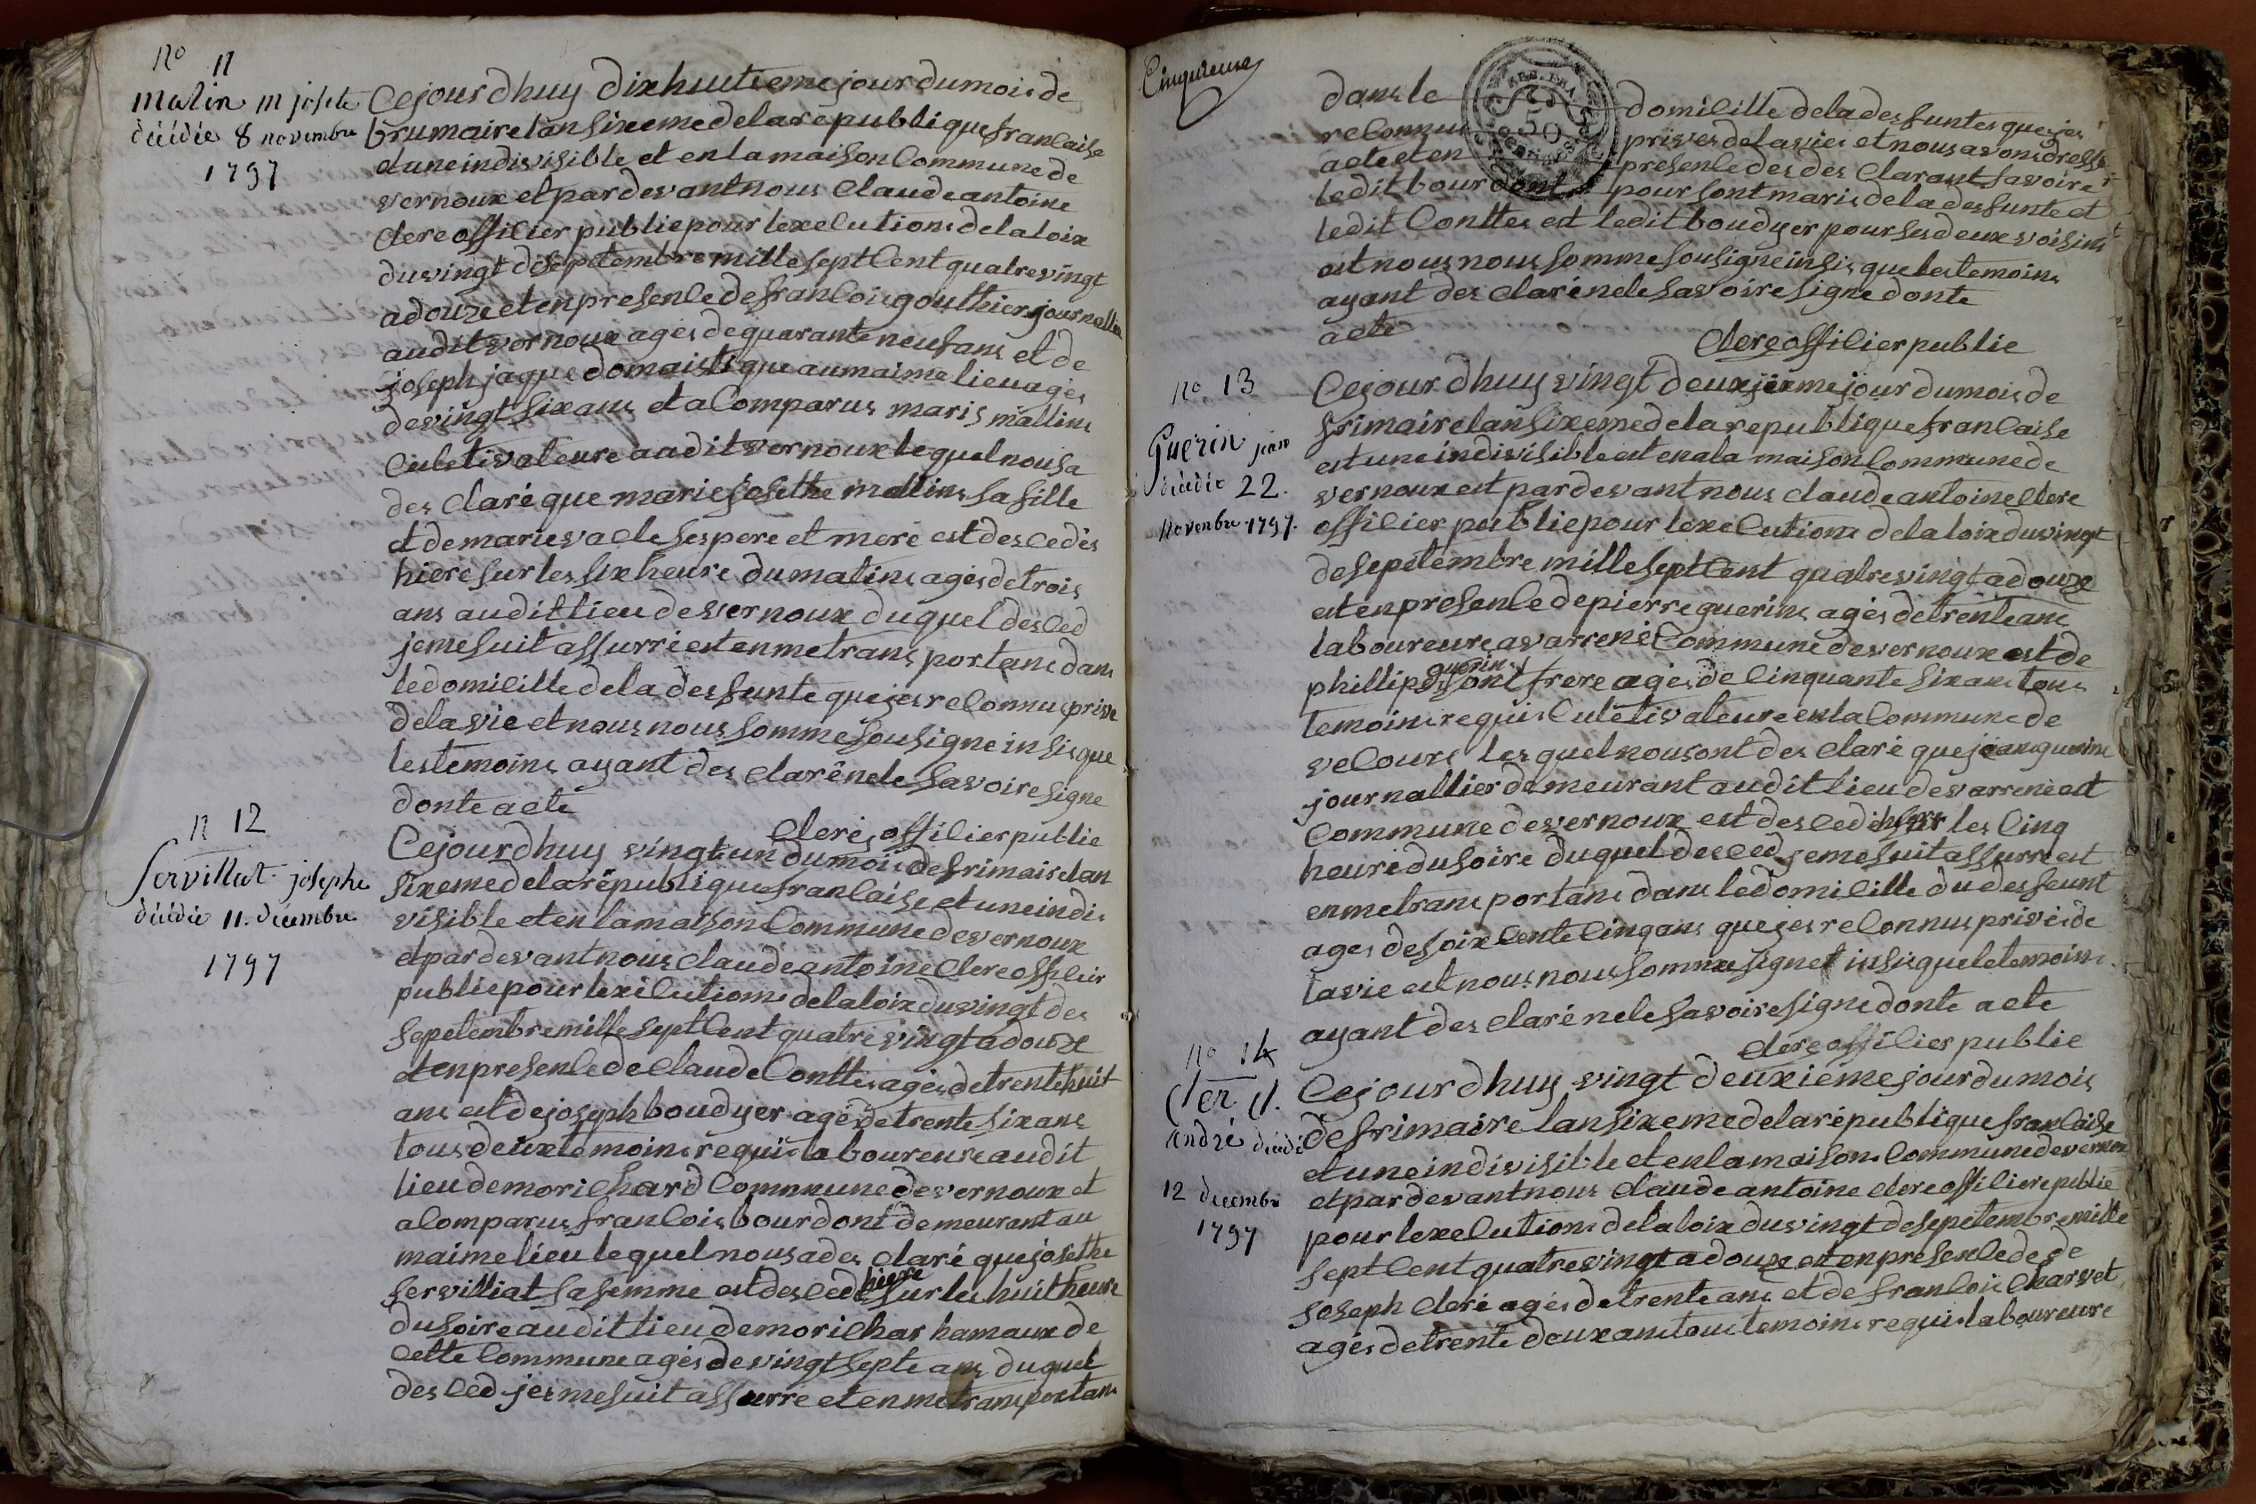 No 11
Malin m josete
décédée 8 novembre
1797
Cejourdhuy dixhuitieme jour dumois de
brumaire lan sixeme delarépublique francaise
etune indivisible et enlamaison Commune de
vernoux etpardevant nous Claude antoine
Clere officier publie pour lexecutions delaloix
duvingt desepetembre mille sept Cent quatrevingt
adouze etenpresence defrancois gouthier journallier
audit vernoux agés dequarante neuf ans et de
joseph jaque domaistique aumaime lieu agés
devingt six ans eta Comparus maris mallins
Culetivateure audit vernoux lequel nousa
des Claré que marie Josethe mallins sa fille
et de marie vacle ses pere et mere est des cedés
hiere sur les six heure dumatins agés detrois
ans audit lieu devernoux duquel des Ced
jemesuit assurré est en metrans portans dans
ledomicille dela desfunte queje reConnus prisve
delavie et nous nous somme sousigne insis que
lestemoins ayant des clarénele savoire signe
donte acte
Cleré officier publie
N 12
Servillat josephe
décédée 11. decembre
1797
Cejourdhuy vingtun dumois defrimaire lan
sixeme delarépublique francaise et uneindis
visible et enlamaison Commune devernoux
etpardevant nous claude antoine Clere officier
publie pour lexecutions delaloix duvingt des
sepetembre mille sept Cent quatre vingt adouze
etenpresence declaude Conttes agés detrente huit
ans est dejoseph boudyer agé detrente six ans
tous deux temoins requis laboureure audit
lieu demorichard Commune devernoux et
aComparus francois bourdont demeurant au
maime lieu lequel nousades claré que josethe
servilliat sa femme est desced hiere sur les huit heure
dusoire audit lieu demorichar hamaux de
Cette Commune agés devingt septe ans duquel
des Ced jesmesuit assurre et en metrans portans
Cinquieme
dans le domicille dela desfuntes queje
reConnus prives delavie et nous avons dressé
acte et en presence des des Clarant savoire
ledit bourdont pour sont maris dela desfunte et
ledit Conttes est ledit boudyer pour ses deux voisins
est nous nous somme sousigne insis que les temoins
ayant des clarénele savoire signe donte
acte
Clere officier publie
No. 13
Guérin jean
décédé 22.
Novembre 1797.
Cejourdhuy vingt deuxjéme jour dumois de
frimaire lansixeme delarepublique francaise
est une indivisible est enala maison Commune de
vernoux est pardevant nous claude antoine Clere
officier publie pour lexecutions delaloix duvingt
desepetembre mille sept Cent quatrevingt adouze
est enpresence depierre guerins agés detrente ans
laboureure avarrené Commune devernoux est de
phillipe guerins sont frere agés de Cinquante six ans tous
temoins requis Culetivateure en la Commune de
veCours lesquel nousont des claré que jean guerins
journallier demeurant audit lieu devarrené est
Commune devernoux est des cedé hiere sur les Cinq
heure dusoire duquel desced jemesuit assurre est
enmetrans portans dans ledomicille du desfeunt
ages desoixcente Cinqans queje reConnus privés de
lavie est nous nous somme signet insis quele temoins
ayant des clarénele savoire signe donte acte
Clere officier publie
No 14
Clerc Cl.
André décédé
12 decembre
1797
Cejourdhuy vingt deuxieme jour dumois
defrimaire lansixeme delarépublique francaise
etune indivisible et enlamaisons Commune devernoux
etpardevant nous Claude antoine clere officiere publie
pour lexecutions delaloix duvingt desepetembre mille
sept Cent quatrevingt adouze et en presence de de
Joseph Cleré agés detrente ans et de francois Charvet
agés detrente deux ans tous temoins requis laboureure